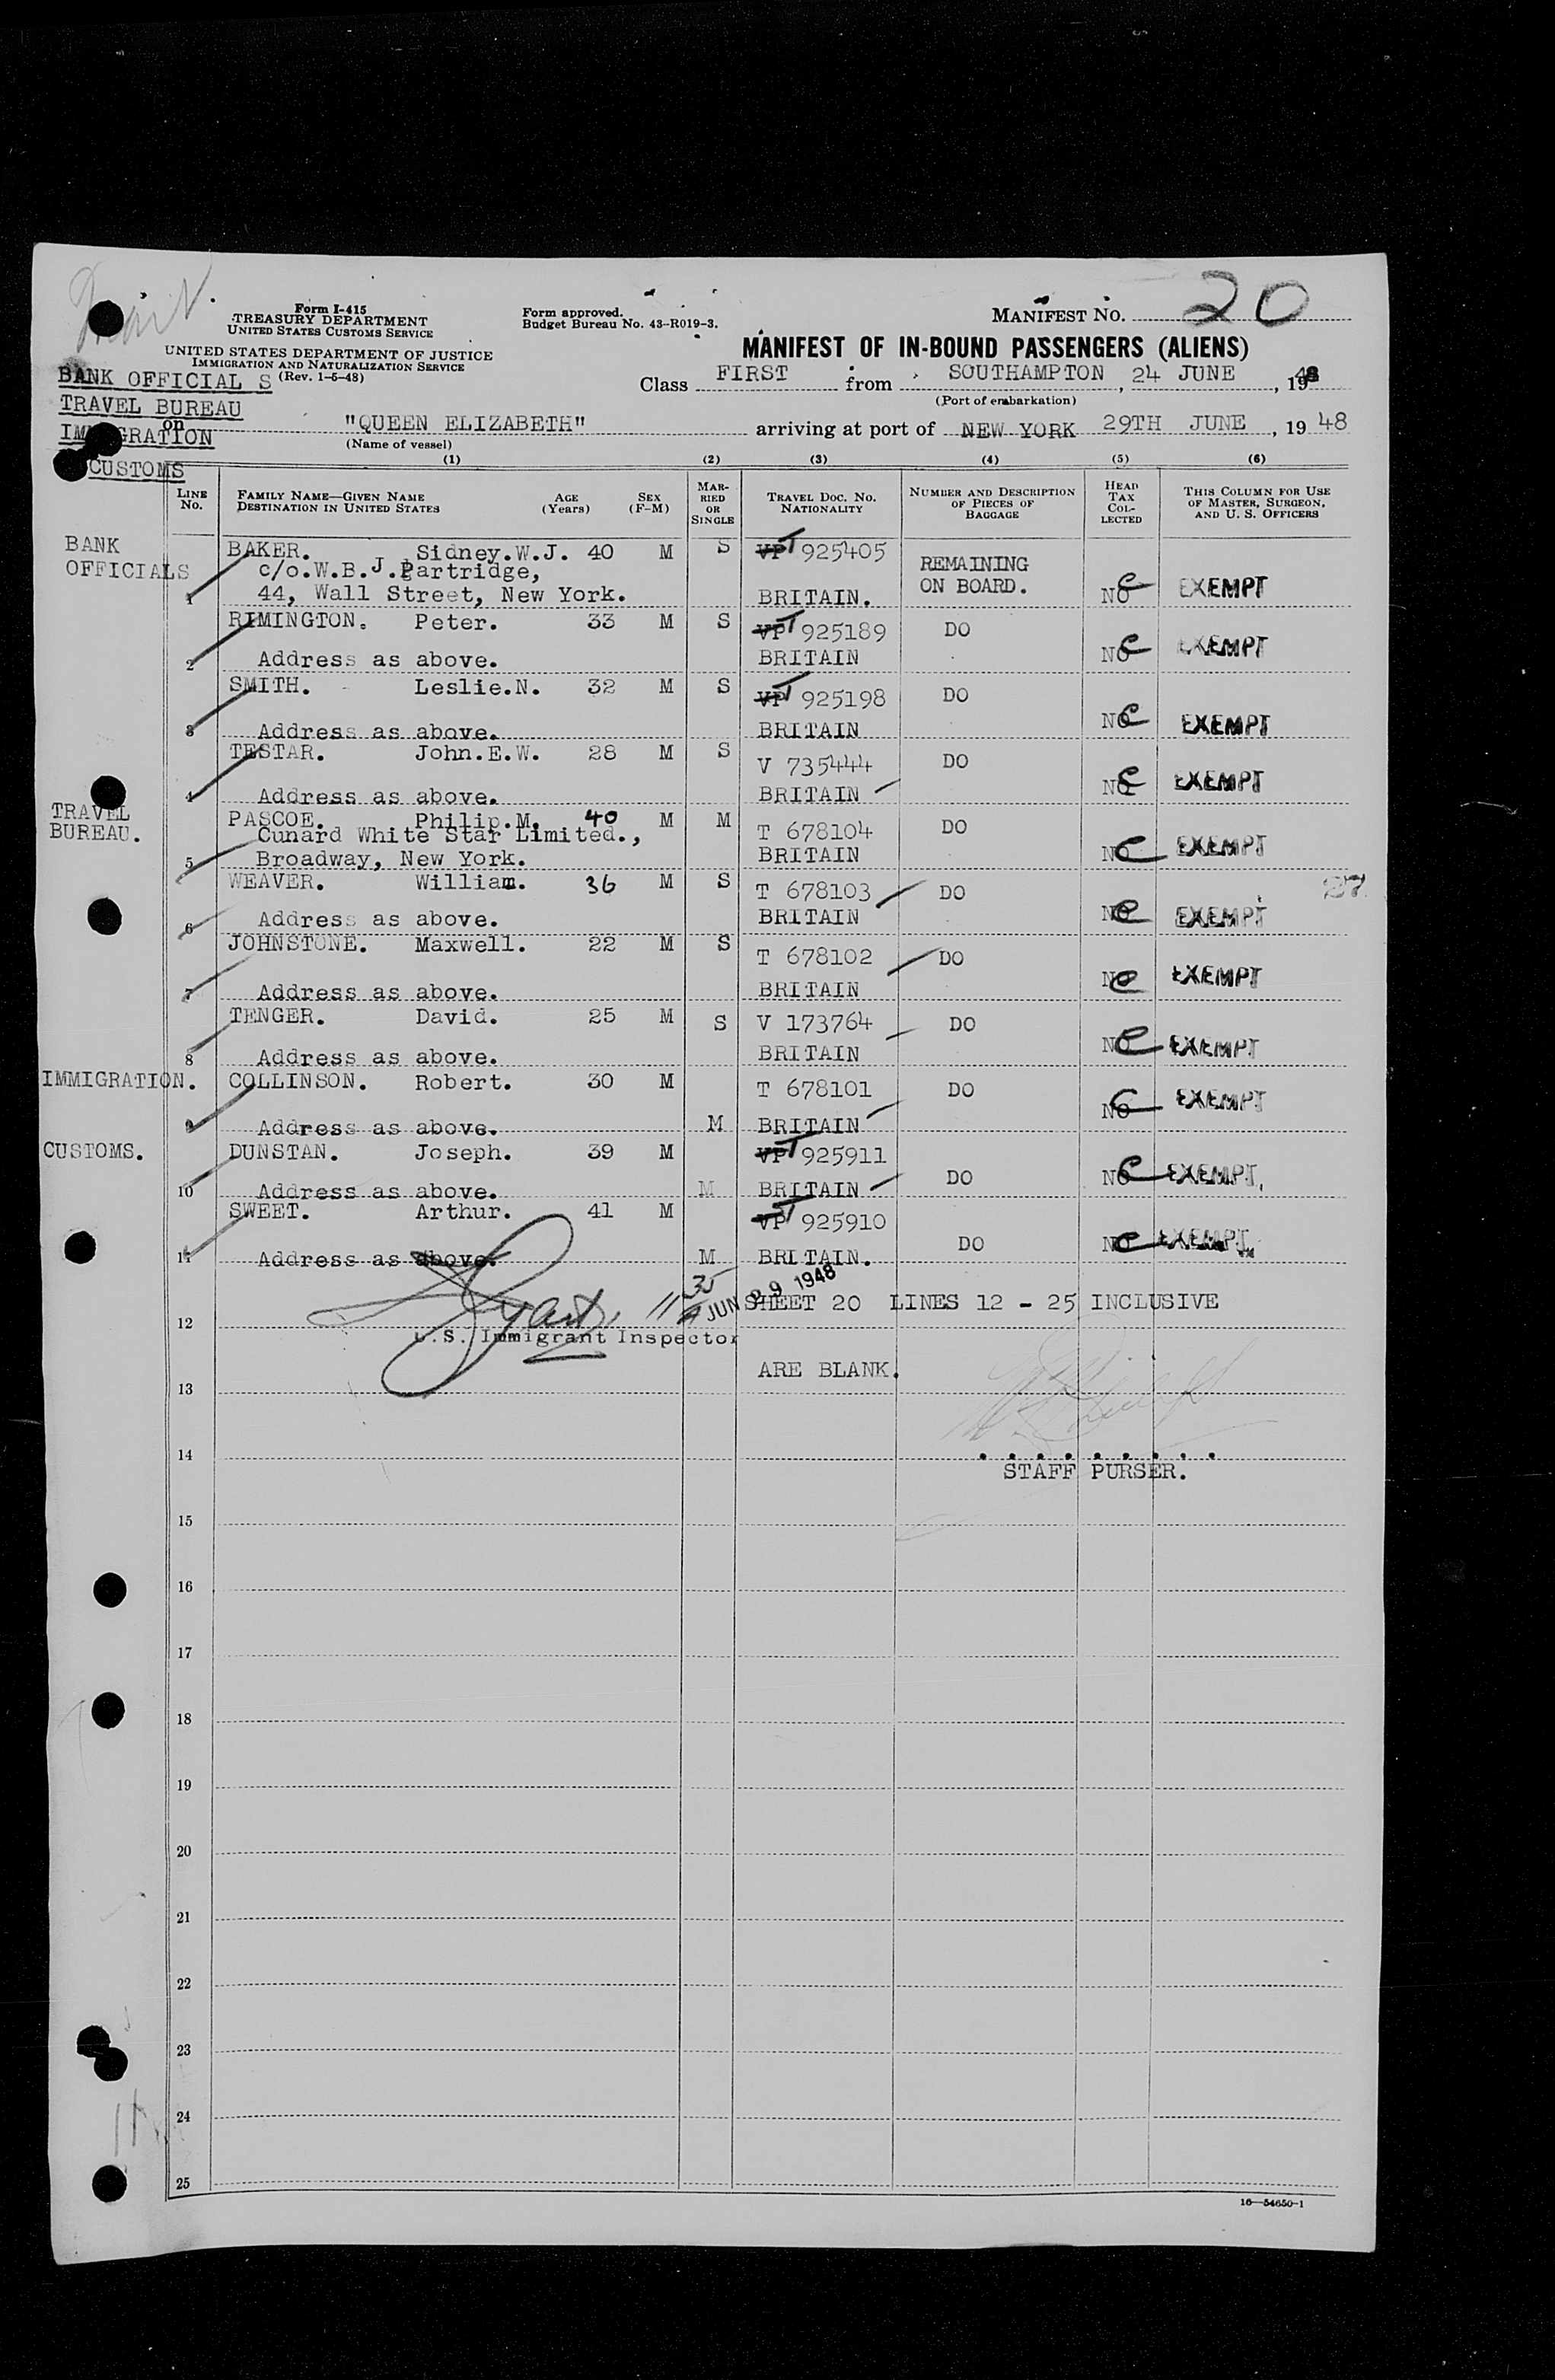 Form I-415
TREASURY DEPARTMENT
UNITED STATES CUSTOMS SERVICE
UNITED STATES DEPARTMENT OF JUSTICE
IMMIGRATION AND NATURALIZATION SERVICE
(Rev. 1-5-48)
Form approved.
Budget Bureau No. 43-R019-3.
MANIFEST NO. 20
MANIFEST OF IN-BOUND PASSENGERS (ALIENS)
BANK OFFICIAL S
TRAVEL BUREAU
IMMIGRATION
CUSTOMS
Class FIRST from SOUTHAMPTON, 24 JUNE, 1948
(Port of embarkation)
on "QUEEN ELIZABETH" arriving at port of NEW YORK 29TH JUNE, 19 48
(Name of vessel)
(1) (2) (3) (4) (5) (6)
LINE NO.
FAMILY NAME—GIVEN NAME
DESTINATION IN UNITED STATES
AGE (Years)
SEX (F-M)
MARRIED OR SINGLE
TRAVEL DOC. NO. NATIONALITY
NUMBER AND DESCRIPTION OF PIECES OF BAGGAGE
HEAD TAX COLLECTED
THIS COLUMN FOR USE OF MASTER, SURGEON, AND U. S. OFFICERS
BANK OFFICIALS
BAKER. Sidney.W.J. 40 M S VP T 925405 REMAINING
c/o.W.B.J.Partridge, ON BOARD.
1 44, Wall Street, New York. BRITAIN. NO C EXEMPT
RIMINGTON. Peter. 33 M S VP T 925189 DO
2 Address as above. BRITAIN NO C EXEMPT
SMITH. Leslie.N. 32 M S VP T 925198 DO
3 Address as above. BRITAIN NO C EXEMPT
TESTAR. John.E.W. 28 M S V 735444 DO
4 Address as above. BRITAIN NO C EXEMPT
TRAVEL BUREAU.
PASCOE. Philip.M. 40 M M T 678104 DO
Cunard White Star Limited.,
5 Broadway, New York. BRITAIN NO C EXEMPT
WEAVER. William. 36 M S T 678103 DO 27
6 Address as above. BRITAIN NO C EXEMPT
JOHNSTONE. Maxwell. 22 M S T 678102 DO
7 Address as above. BRITAIN NO C EXEMPT
TENGER. David. 25 M S V 173764 DO
8 Address as above. BRITAIN NO C EXEMPT
IMMIGRATION. COLLINSON. Robert. 30 M T 678101 DO
9 Address as above. M BRITAIN NO C EXEMPT
CUSTOMS. DUNSTAN. Joseph. 39 M VP T 925911
10 Address as above. M BRITAIN DO NO C EXEMPT
SWEET. Arthur. 41 M VP T 925910
11 Address as above. M BRITAIN. DO NO C EXEMPT
11 35 A JUN 29 1948
12 SHEET 20 LINES 12 - 25 INCLUSIVE
U.S. Immigrant Inspector
13 ARE BLANK.
14
STAFF PURSER.
15
16
17
18
19
20
21
22
23
24
25
16—54650-1